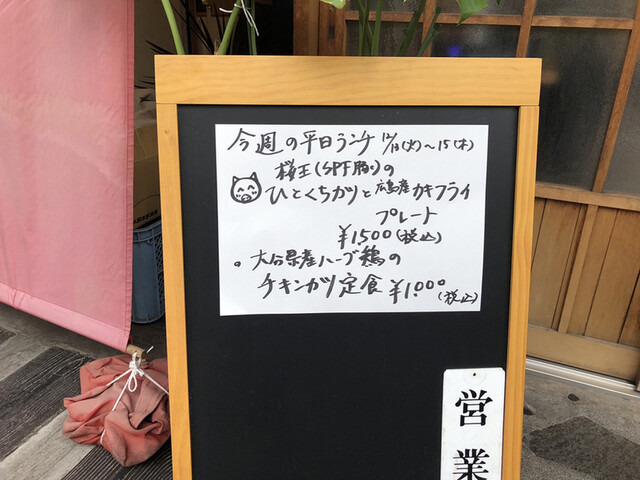 今週の平日ランチ 12/13(火)～15(木)
桜王(SPF豚)の
ひとくちカツと広島産カキフライ
プレート
¥1,500(税込)
。大分県産ハーブ鶏の
チキンカツ定食 ¥1,000(税込)
営業